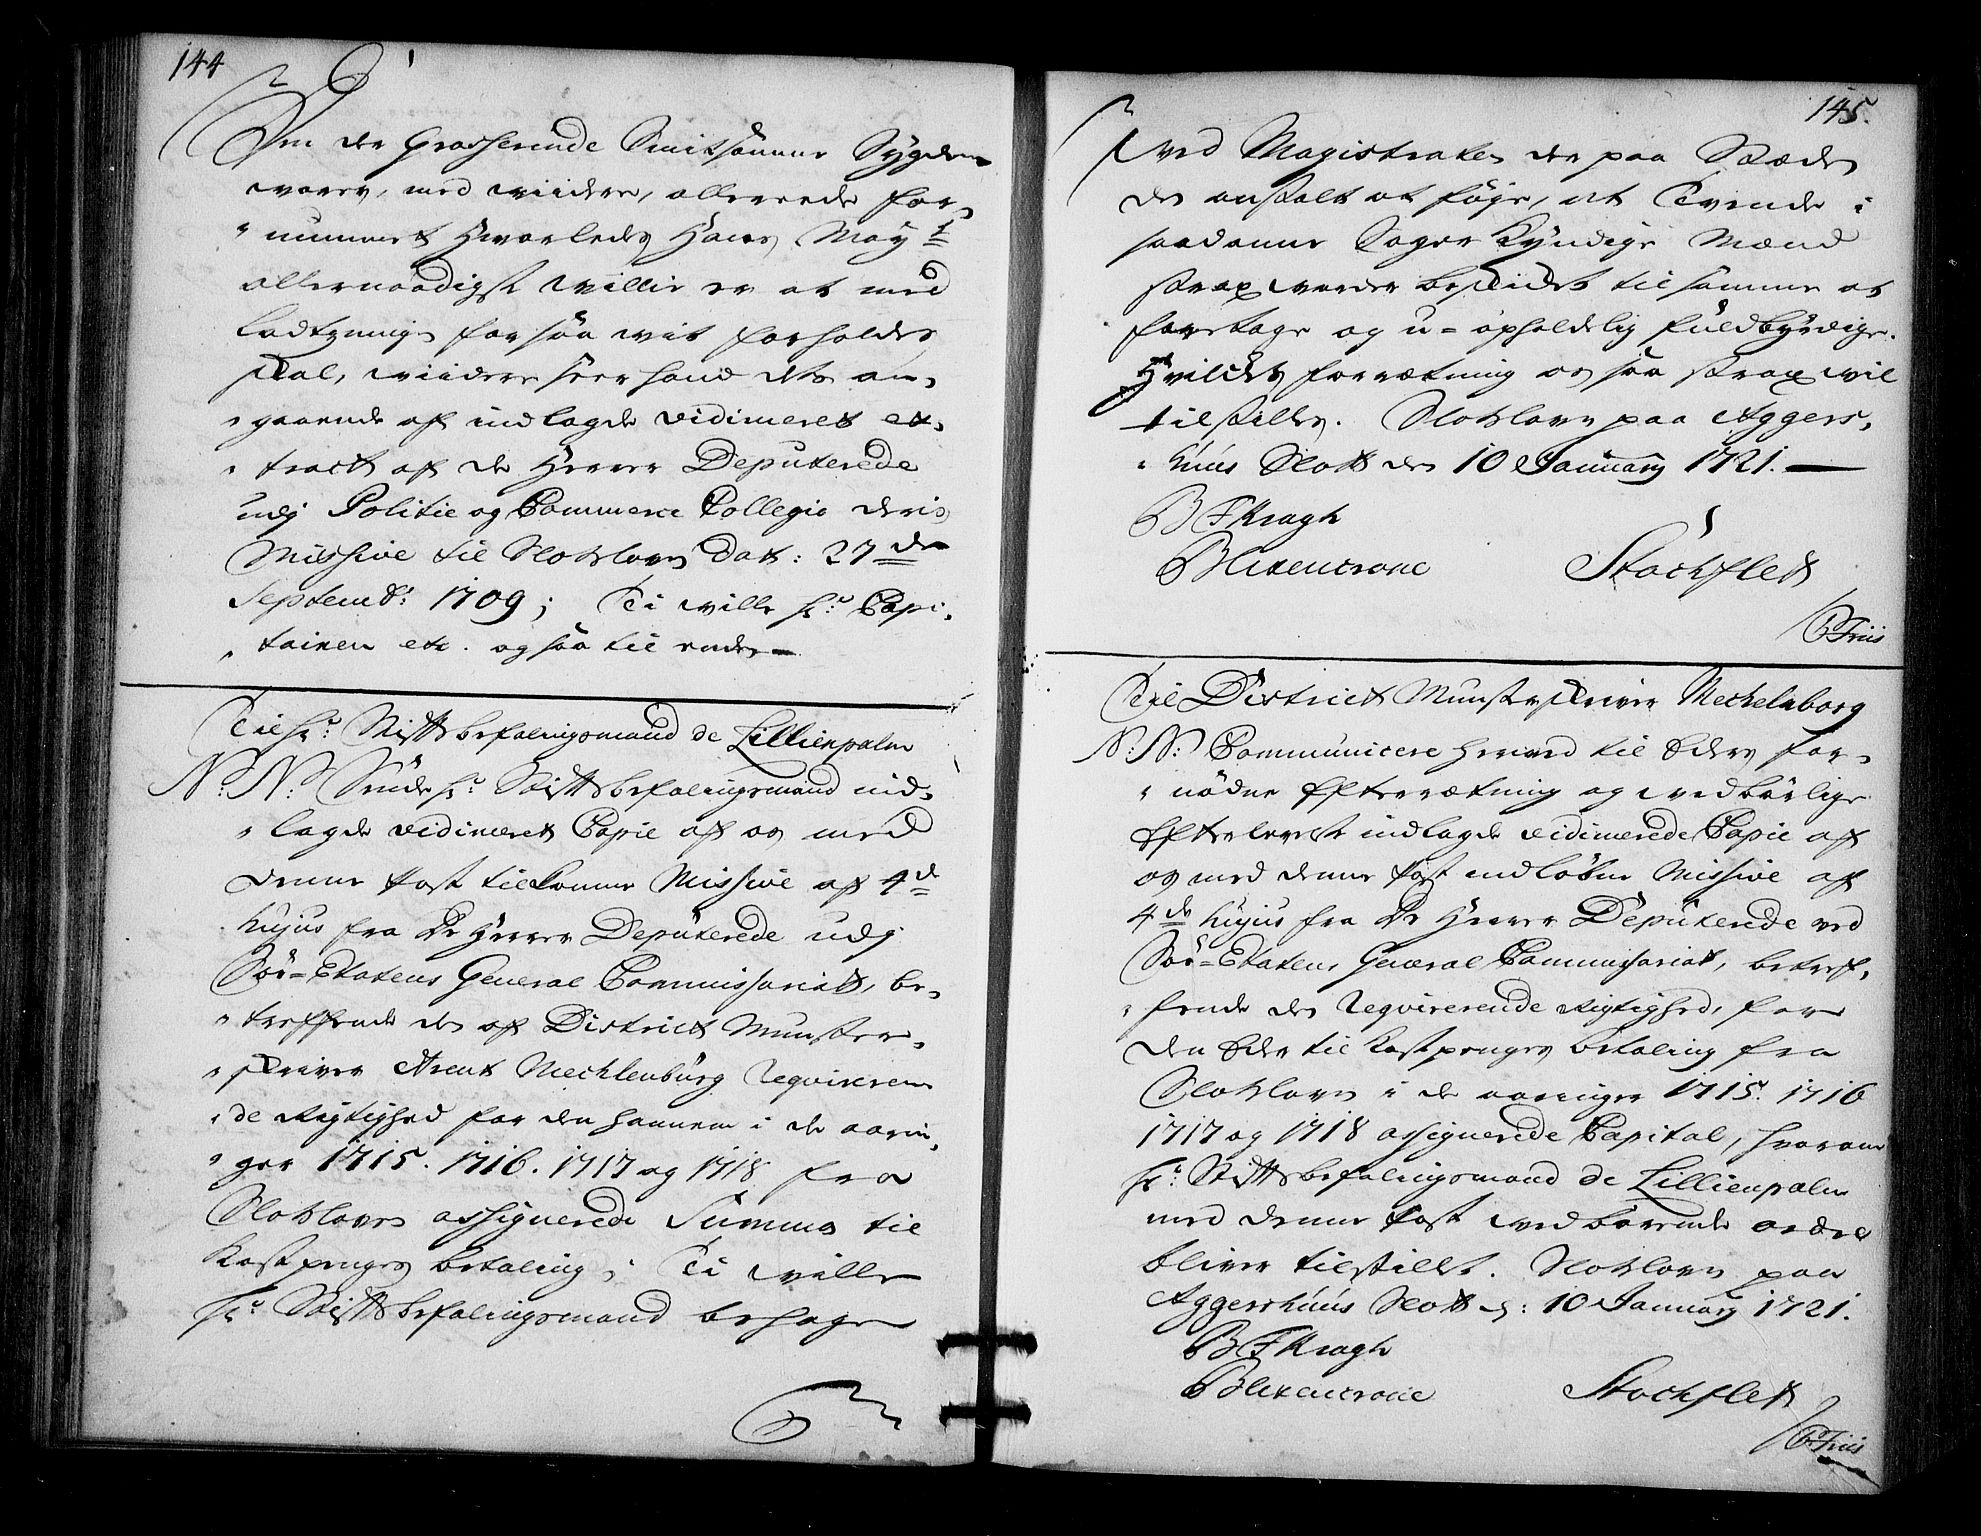 144
Om den Grasserende Smitsomme Sygdom
varer, med viidere, allereede for-
nummet Hvorledes Hans May:t
allernaadigst villie er at med
ladtgiunings for saa vit forholdes
skal, viidere seer hand dets an-
gaaende af indlagde vidimeret ex-
tract af de Herrer Deputerede
udj Politie og Commerce Collegio deris
Missive til Slotsloven Dat: 27de
Septembr: 1709; Ti ville hr: Capi-
tainen etc. og saa til ende
Til hr: Stiftsbefalingsmand de Lillienpalm
N: N: Sende hr: Stiftsbefalingsmand ind-
lagde vidimeret Copie af os med
denne Post tilkomne Missive af 4de
hujus fra De Herrer Deputerede udj
Söe-Etatens General Commissariatt, be-
treffende den af District Munster-
skriver Arent Mechlenburg Reqvireren-
de Rigtighed for den hannem i de aarin-
ger 1715. 1716. 1717 og 1718 fra
Slotsloven assignerede Summa til
Kostpenges betaling; Ti ville
hr: Stiftsbefalingsmand behage
145.
ved Magistraten der paa Stæde
den anstalt at föye, at Tvende i
saadanne Sager Kyndige Mænd
strax vorder beskidet til samme at
foretage og u-ophaldelig fuldbyrdige.
Hvilcken forretning os saa strax vil
tilstilles. Slotsloven paa Aggers-
huus Slott den 10 January 1721.
B F Kragh
Blixencrone Stochflett
C Friis
Til District Munsterskriver Mechelnborg
N: N: Communicere herved til Eders for-
nödne Efterretning og vedbörlige
Efterlevelse indlagde vidimerede Copie af
os med denne Post indlöbne Missive af
4de hujus fra De Herrer Deputerede ved
Söe-Etatens General Commissariatt, betref-
fende den Reqvirerende Rigtighed, for
den Eder til Kostpenges betaling fra
Slotsloven i de aaringer 1715. 1716
1717 og 1718 assignerede Capital, hvorom
hr: Stiftsbefalingsmand de Lillienpalm
med denne Post vedbörende ordre
bliver tilstillet. Slotsloven paa
Aggershuus Slott d: 10 January 1721.
B F Kragh
Blixencrone Stochflett
C Friis